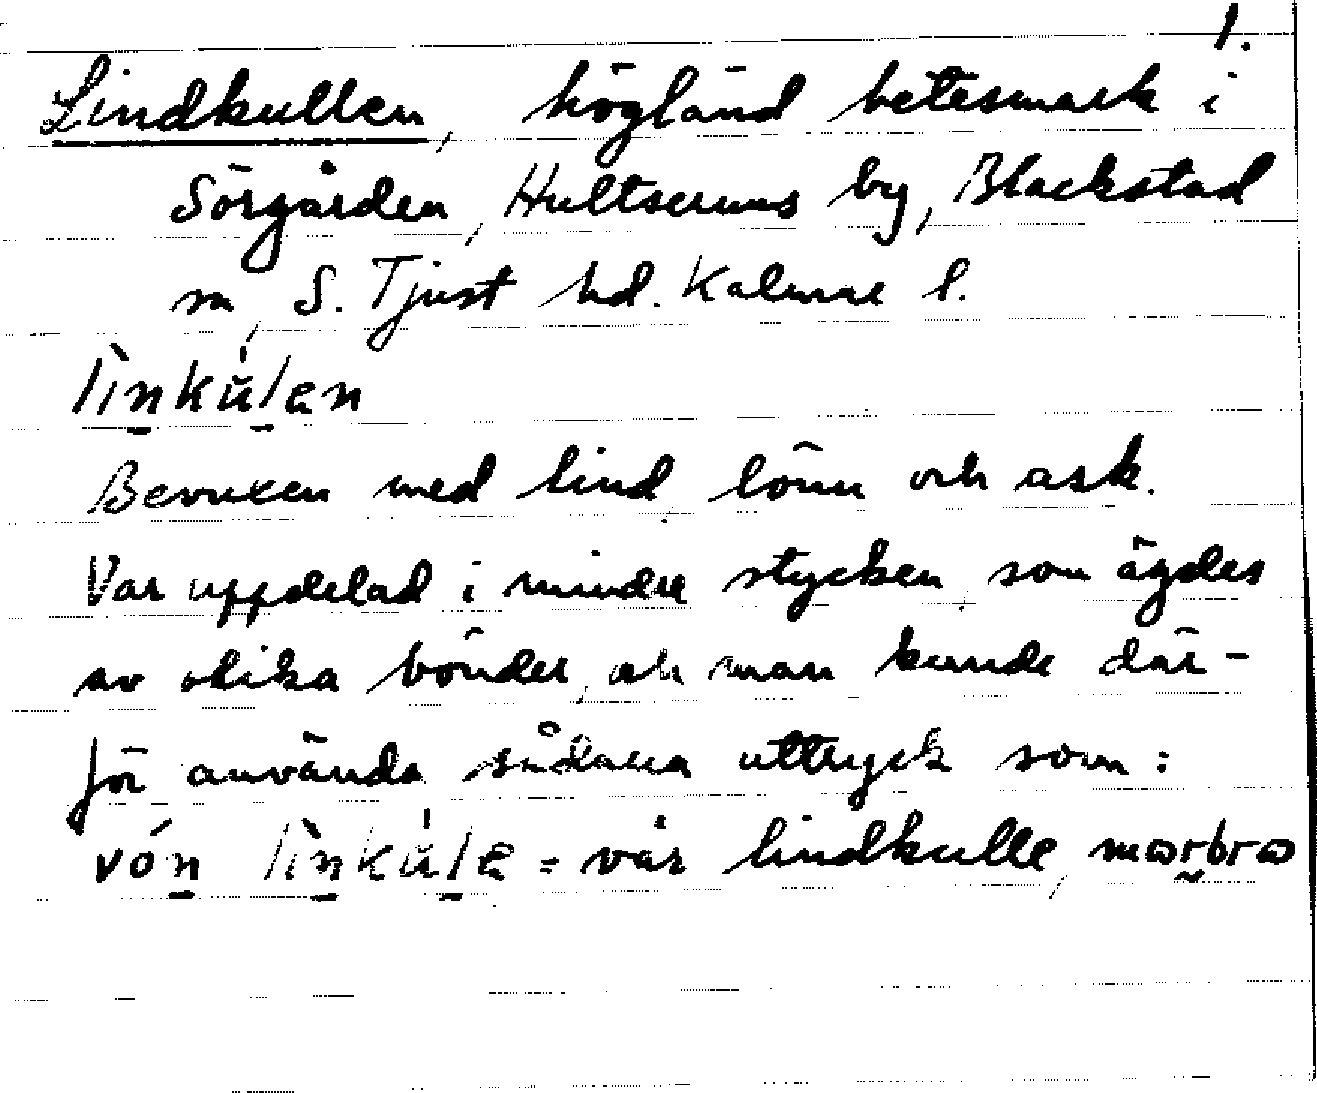 1.
Lindkullen, högländ betesmark i
Sörgården, Hultserums by, Blackstad
sn, S. Tjust hd. Kalmar l.
lìnkùlen
Bevuxen med lind lönn och ask.
Var uppdelad i mindre stycken som ägdes
av olika bönder, och man kunde där-
för använda sådana uttryck som:
vón lìnkùle = vår lindkulle, mɷrbrɷ